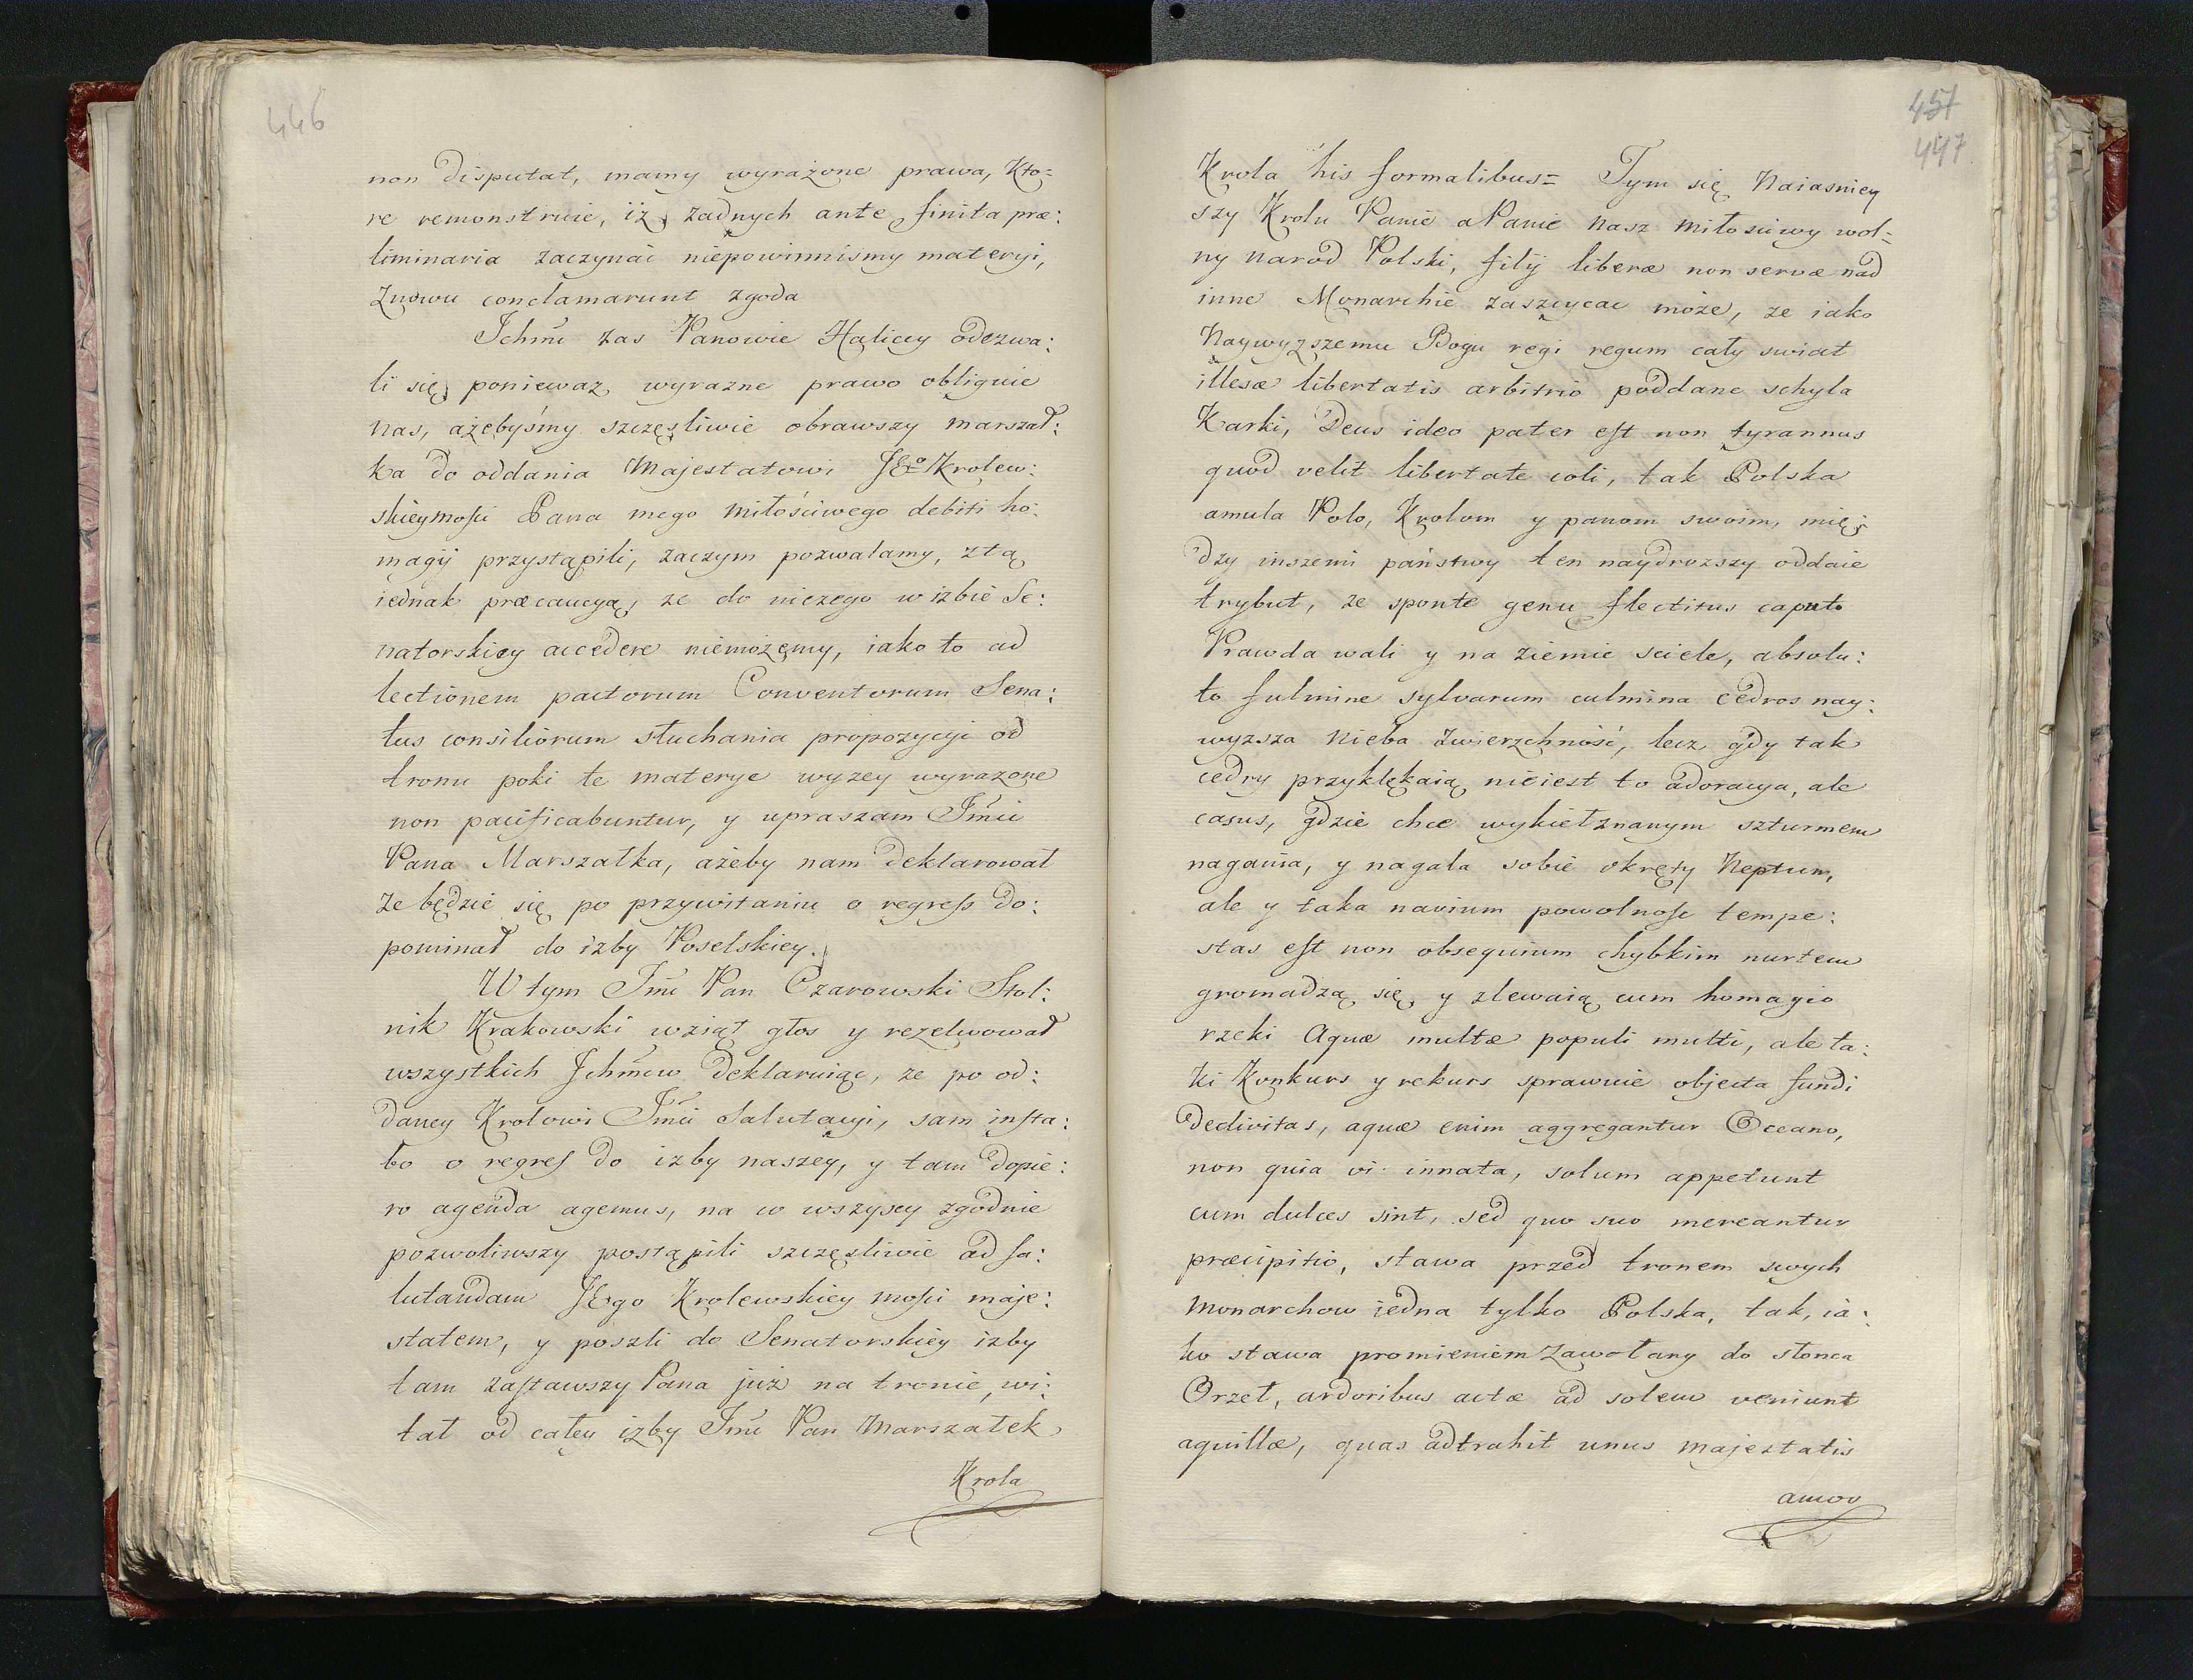 446
non disputat, mamy wyrażone prawa, Kto=
re remonstruie, iż żadnych ante finita præ:
liminaria zaczynać niepowinnismy materyi,
Znowu conclamarunt zgoda
Ichmć zas Panowie Haliccy odezwa:
li się poniewaz wyrazne prawo obliguie
nas, ażebyśmy szczęsliwie obrawszy marszał:
ka do oddania Majestatowi JEo Krolew:
skieymości Pana mego miłościwego debiti ho:
magij przystąpili, zaczym pozwalamy, z tą
iednak præcaucyą, ze do niczego w izbie Se:
natorskiey accedere niemożemy, iako to ad
lectionem pactorum Conventorum Sena:
tus consiliorum słuchania propozycyi od
tronu poki te materye wyzey wyrazone
non pacificabuntur, y upraszam Jmći
Pana Marszałka, ażeby nam deklarował
że będzie się po przywitaniu o regress do:
pominał do izby Poselskiey.
W tym Jmć Pan Czarowski Stol:
nik Krakowski wziął głos y rezelwował
wszystkich Ichmćiow deklaruiąc, ze po od:
daney Krolowi Jmći Salutacyi, sam insta:
bo o regres do izby naszey, y tam dopie:
ro agenda agemus, na co wszyscy zgodnie
pozwoliwszy postąpili szczęsliwie ad sa:
lutandam JEgo Krolewskiey mości maje:
statem, y poszli do Senatorskiey izby
tam zastawszy Pana już na tronie, wi:
tał od całey izby Jmć Pan Marszałek
Krola
457
447
Krola his formalibus= Tym się Naiasniey
szy Krolu Panie a Panie Nasz Miłosciwy wol=
ny narod Polski, filij liberæ non servæ nad
inne Monarchie zaszczycac może, ze iako
Naywyzszemu Bogu regi regum cały swiat
illesæ libertatis arbitrio poddane schyla
Karki, Deus ideo pater est non tyrannus
quod velit libertate coli, tak Polska
amula Polo, Krolom y panom swoim, mię
dzy inszemi państwy ten naydrozszy oddaie
trybut, ze sponte genu flectitus caputo
Prawda wali y na ziemie sciele, absolu:
to fulmine sylvarum culmina cedros nay:
wyzsza Nieba Zwierzchność, lecz gdy tak
cedry przyklękaią nieiest to adoracya, ale
casus, gdzie chce wykiełznanym szturmem
nagania, y nagala sobie okręty Neptun,
ale y taka navium powolnosc tempe:
stas est non obsequium chybkim nurtem
gromadzą się y zlewaią cum homagio
rzeki Aquæ multæ populi multi, ale ta:
ki Konkurs y rekurs sprawuie objecta fundi
declivitas, aquæ enim aggregantur Oceano,
non quia vi innata, solum appetunt
cum dulces sint, sed quo suo mereantur
præcipitio, stawa przed tronem swych
Monarchow iedna tylko Polska, tak, ia:
ko stawa promieniem zawołany do słonca
Orzeł, ardoribus actæ ad solem veniunt
aquillæ, quas adtrahit unus majestatis
amor